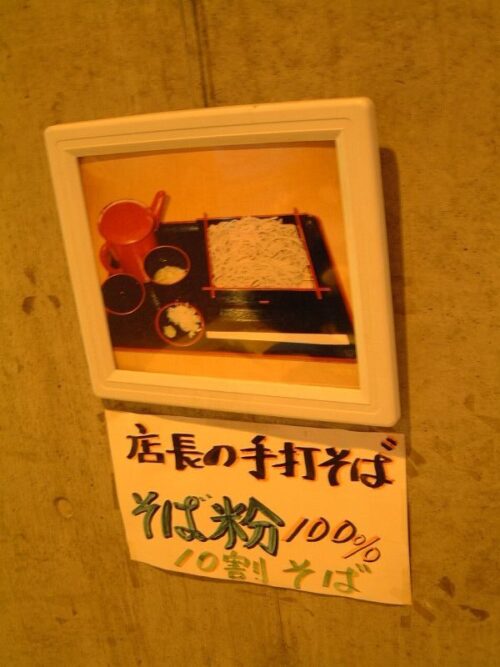 店長の手打そば
そば粉100%
10割そば